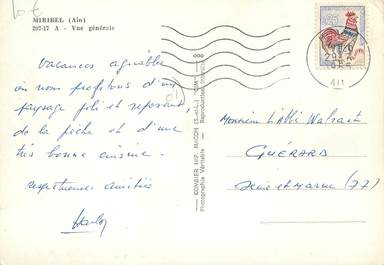 10 €
MIRIBEL (Ain)
297-17 A - Vue générale
Vacances agréables
où nous profitons d'un
paysage joli et reposant
de la pêche et d'une
très bonne cuisine.
respectueuses amitiés
COMBIER IMP. MACON (S.-et-L.) "CIM"
Photographie Véritable - Reproduction Interdite
Monsieur l'Abbé
GUÉRARD
Seine et Marne (77)